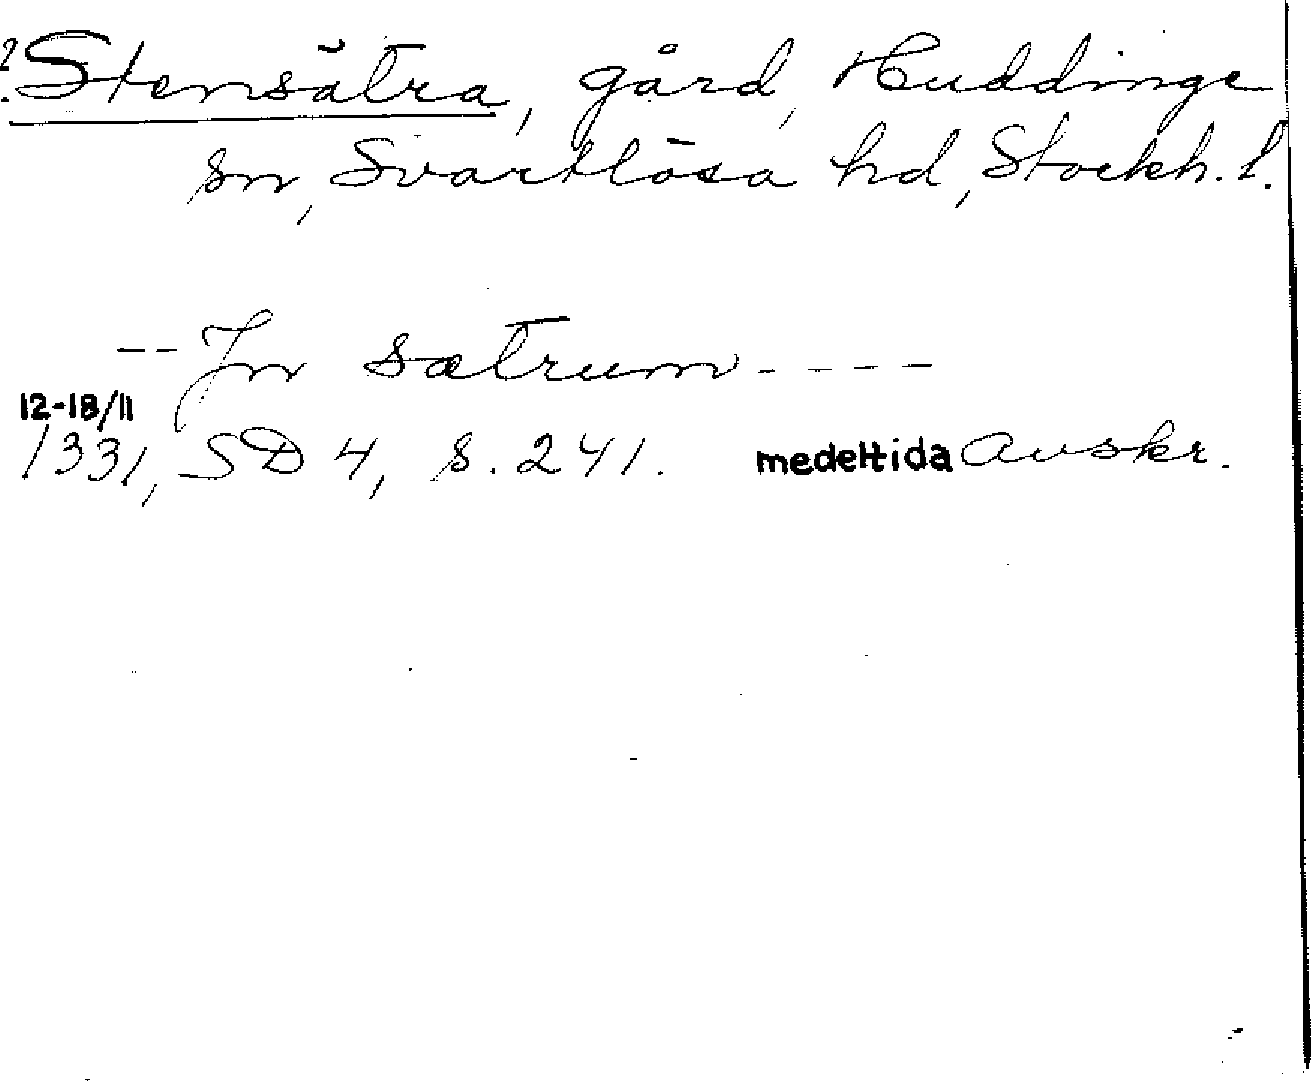 ? Stensätra, gård, Huddinge
sn, Svartlösa hd, Stockh. l.
-- Jn sætrum ----
12-18/11
1331, SD 4, s. 241. medeltida Avskr.